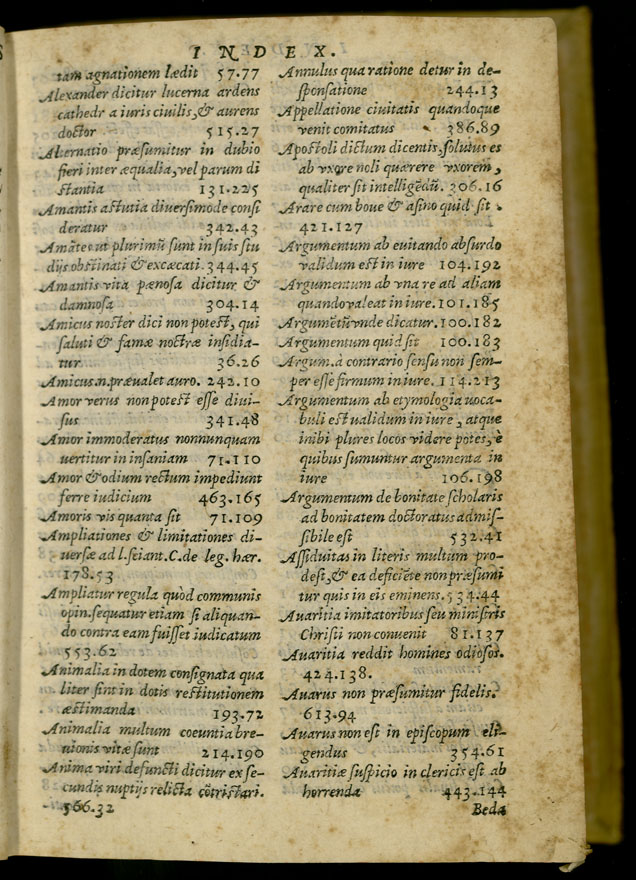 INDEX.
tam agnationem lædit 57.77
Alexander dicitur lucerna ardens
cathedr a iuris ciuilis, & aurens
doctor 515.27
Alternatio præsumitur in dubio
fieri inter æqualia, vel parum di
stantia 131.225
Amantis astutia diuersimode consi
deratur 342.43
Amãtes ut plurimũ sunt in suis stu
dijs obstinati & excæcati. 344.45
Amantis vita pænosa dicitur &
damnosa 304.14
Amicus noster dici non potest, qui
saluti & famæ noctræ insidia-
tur 36.26
Amicus.n.præualet auro. 242.10
Amor verus non potest esse diui-
sus 341.48
Amor immoderatus nonnunquam
uertitur in insaniam 71.110
Amor & odium rectum impediunt
ferre iudicium 463.165
Amoris vis quanta sit 71.109
Ampliationes & limitationes di-
uersæ ad l.sciant.C.de leg. hær.
178.53
Ampliatur regula quòd communis
opin.sequatur etiam si aliquan-
do contra eam fuisset iudicatum
553.62
Animalia in dotem consignata qua
liter sint in dotis restitutionem
æstimanda 193.72
Animalia multum coeuntia bre-
uionis vitæ sunt 214.190
Anima viri defuncti dicitur ex se-
cundis nuptijs relicta cõtristari.
566.32
Annulus qua ratione detur in de-
sponsatione 244.13
Appellatione ciuitatis quandoque
venit comitatus 386.89
Apostoli dictum dicentis, solutus es
ab vxore noli quærere vxorem,
qualiter sit intelligẽdũ. 306.16
Arare cum boue & asino quid sit
421.127
Argumentum ab euitando absurdo
validum est in iure 104.192
Argumentum ab vna re ad aliam
quando valeat in iure. 101.185
Argumẽtũ vnde dicatur. 100.182
Argumentum quid sit 100.183
Argum.à contrario sensu non sem-
per esse firmum in iure. 114.213
Argumentum ab etymologia uoca-
buli est ualidum in iure, atque
inibi plures locos videre potes, è
quibus sumuntur argumenta in
iure 106.198
Argumentum de bonitate scholaris
ad bonitatem doctoratus admis-
sibile est 532.41
Assiduitas in literis multum pro-
dest, & ea deficiẽte non præsumi
tur quis in eis eminens. 534.44
Auaritia imitatoribus seu ministris
Christi non conuenit 81.137
Auaritia reddit homines odiosos.
424.138.
Auarus non præsumitur fidelis.
613.94
Auarus non est in episcopum eli-
gendus 354.61
Auaritiæ suspicio in clericis est ab
horrenda 443.144
Beda